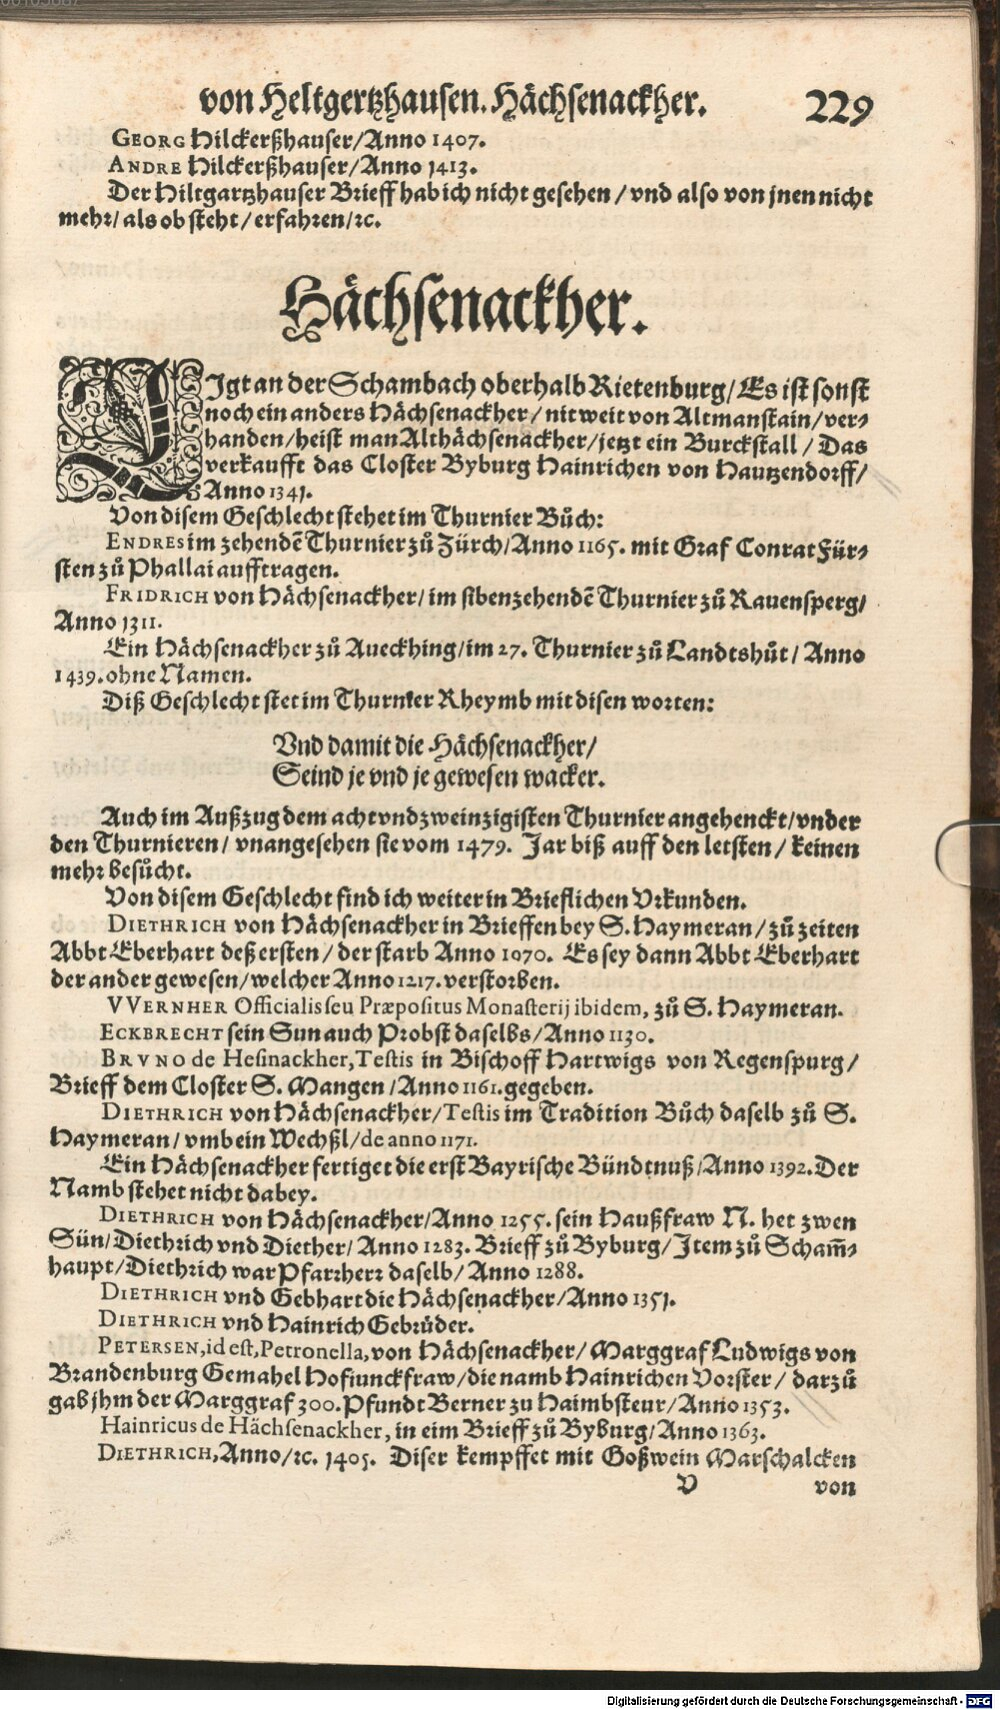 von Heltgertzhausen. Hächsenackher. 229
GEORG Hilckerßhauser/Anno 1407.
ANDRE Hilckerßhauser/Anno 1413.
Der Hiltgartzhauser Brieff hab ich nicht gesehen / vnd also von jnen nicht
mehr/ als ob steht / erfahren/ꝛc.
Hächsenackher.
LIgt an der Schambach oberhalb Rietenburg/ Es ist sonst
noch ein anders Hächsenackher / nit weit von Altmanstain / ver⸗
handen / heist man Althächsenackher / jetzt ein Burckstall / Das
verkaufft das Closter Byburg Hainrichen von Hautzendorff/
Anno 1341.
Von disem Geschlecht stehet im Thurnier Bůch:
ENDRES im zehendē Thurnier zů Zürch/Anno 1165. mit Graf Conrat Für⸗
sten zů Phallai aufftragen.
FRIDRICH von Hächsenackher/ im sibenzehendē Thurnier zů Rauensperg/
Anno 1311.
Ein Hächsenackher zů Aueckhing/im 27. Thurnier zů Landtshůt / Anno
1439. ohne Namen.
Diß Geschlecht stet im Thurnier Rheymb mit disen worten:
Vnd damit die Hächsenackher/
Seind je vnd je gewesen wacker.
Auch im Außzug dem acht vnd zweinzigisten Thurnier angehenckt/vnder
den Thurnieren / vnangesehen sie vom 1479. Jar biß auff den letsten / keinen
mehr besůcht.
Von disem Geschlecht find ich weiter in Brieflichen Vrkunden.
DIETHRICH von Hächsenackher in Brieffen bey S. Haymeran / zů zeiten
Abbt Eberhart deß ersten / der starb Anno 1070. Es sey dann Abbt Eberhart
der ander gewesen/welcher Anno 1217. verstorben.
VVERNHER Officialis seu Præpositus Monasterij ibidem, zů S. Haymeran.
ECKBRECHT sein Sun auch Probst daselbs/Anno 1130.
BRVNO de Hesinackher, Testis in Bischoff Hartwigs von Regenspurg/
Brieff dem Closter S. Mangen /Anno 1161. gegeben.
DIETHRICH von Hächsenackher/ Testis im Tradition Bůch daselb zů S.
Haymeran/ vmb ein Wechßl/de anno 1171.
Ein Hächsenackher fertiget die erst Bayrische Bündtnuß/Anno 1392. Der
Namb stehet nicht dabey.
DIETHRICH von Hächsenackher/Anno 1255. sein Haußfraw N. het zwen
Sün/Diethrich vnd Diether/ Anno 1283. Brieff zů Byburg/ Item zů Scham̄⸗
haupt/Diethrich war Pfarrherr daselb/ Anno 1288.
DIETHRICH vnd Gebhart die Hächsenackher/Anno 1351.
DIETHRICH vnd Hainrich Gebrůder.
PETERSEN, id est, Petronella, von Hächsenackher/ Marggraf Ludwigs von
Brandenburg Gemahel Hofiunckfraw/die namb Hainrichen Vorster / darzů
gab jhm der Marggraf 300. Pfundt Berner zu Haimbsteur/Anno 1353.
Hainricus de Hächsenackher, in eim Brieff zů Byburg/Anno 1363.
DIETHRICH, Anno/ꝛc. 1405. Diser kempffet mit Goßwein Marschalcken
V von
Digitalisierung gefördert durch die Deutsche Forschungsgemeinschaft - DFG